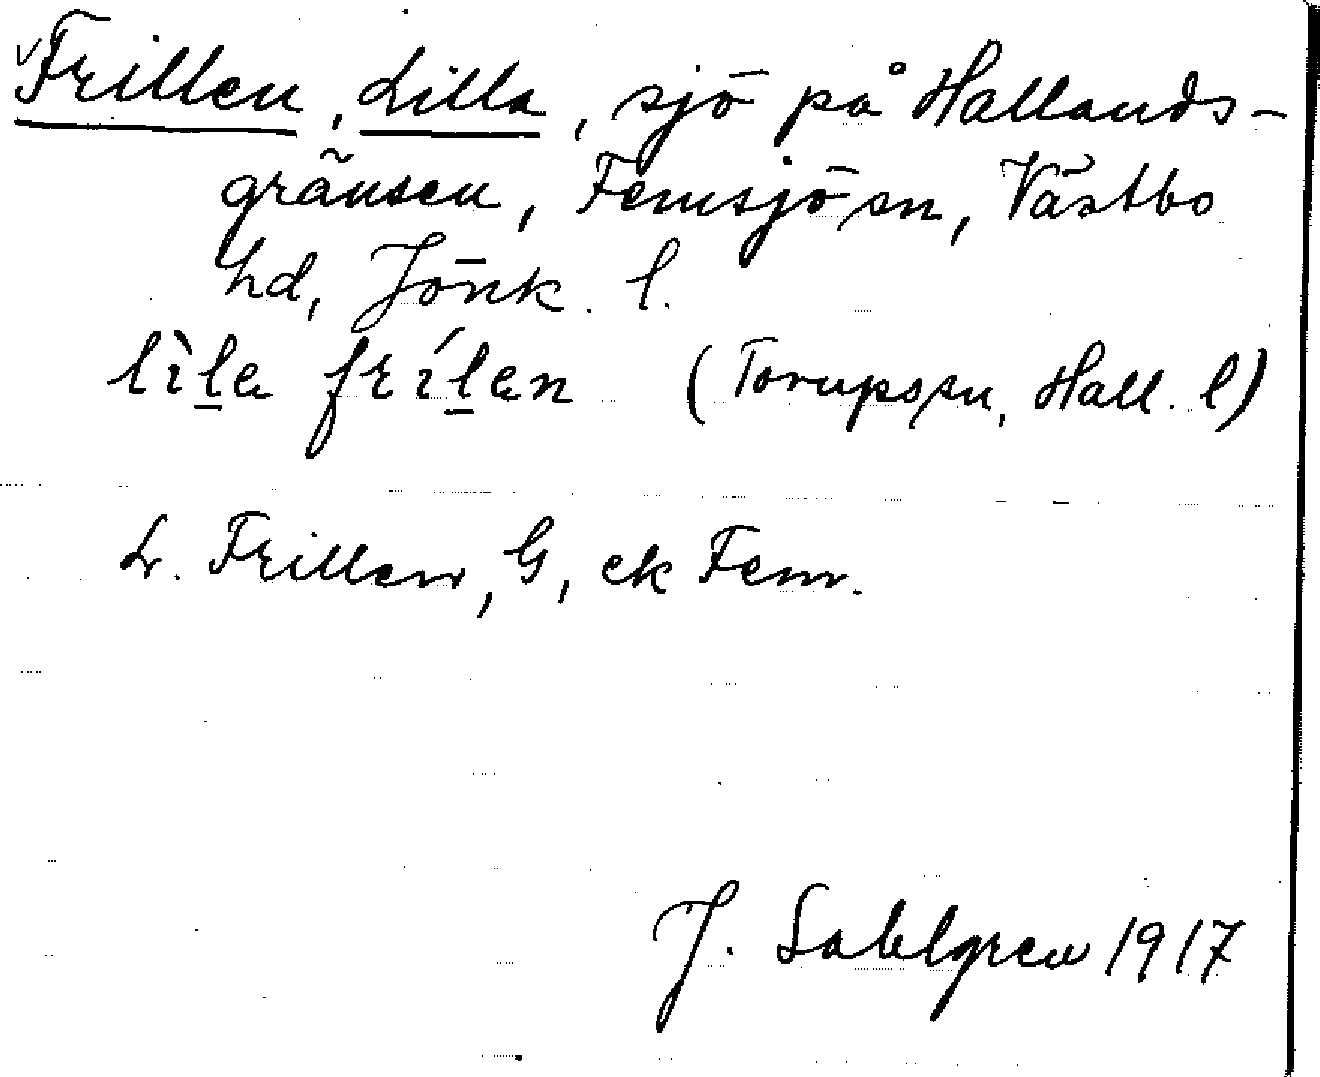 Frillen, Lilla, sjö på Hallands-
gränsen, Femsjö sn, Västbo
hd, Jönk. l.
lìḻa fríḻen (Torups sn, Hall. l)
L. Frillen, G, ek Fem.
J. Sahlgren 1917